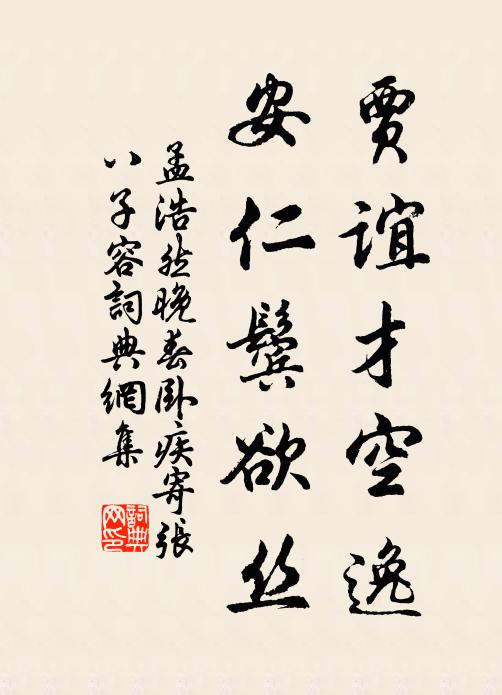 賈誼才空逸
安仁鬓欲丝
孟浩然晚春卧疾寄張
八子容詞典網集
詞典
网印